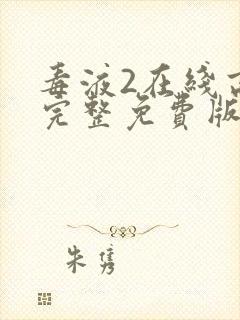 毒液2在线高
完整免费版
朱隽